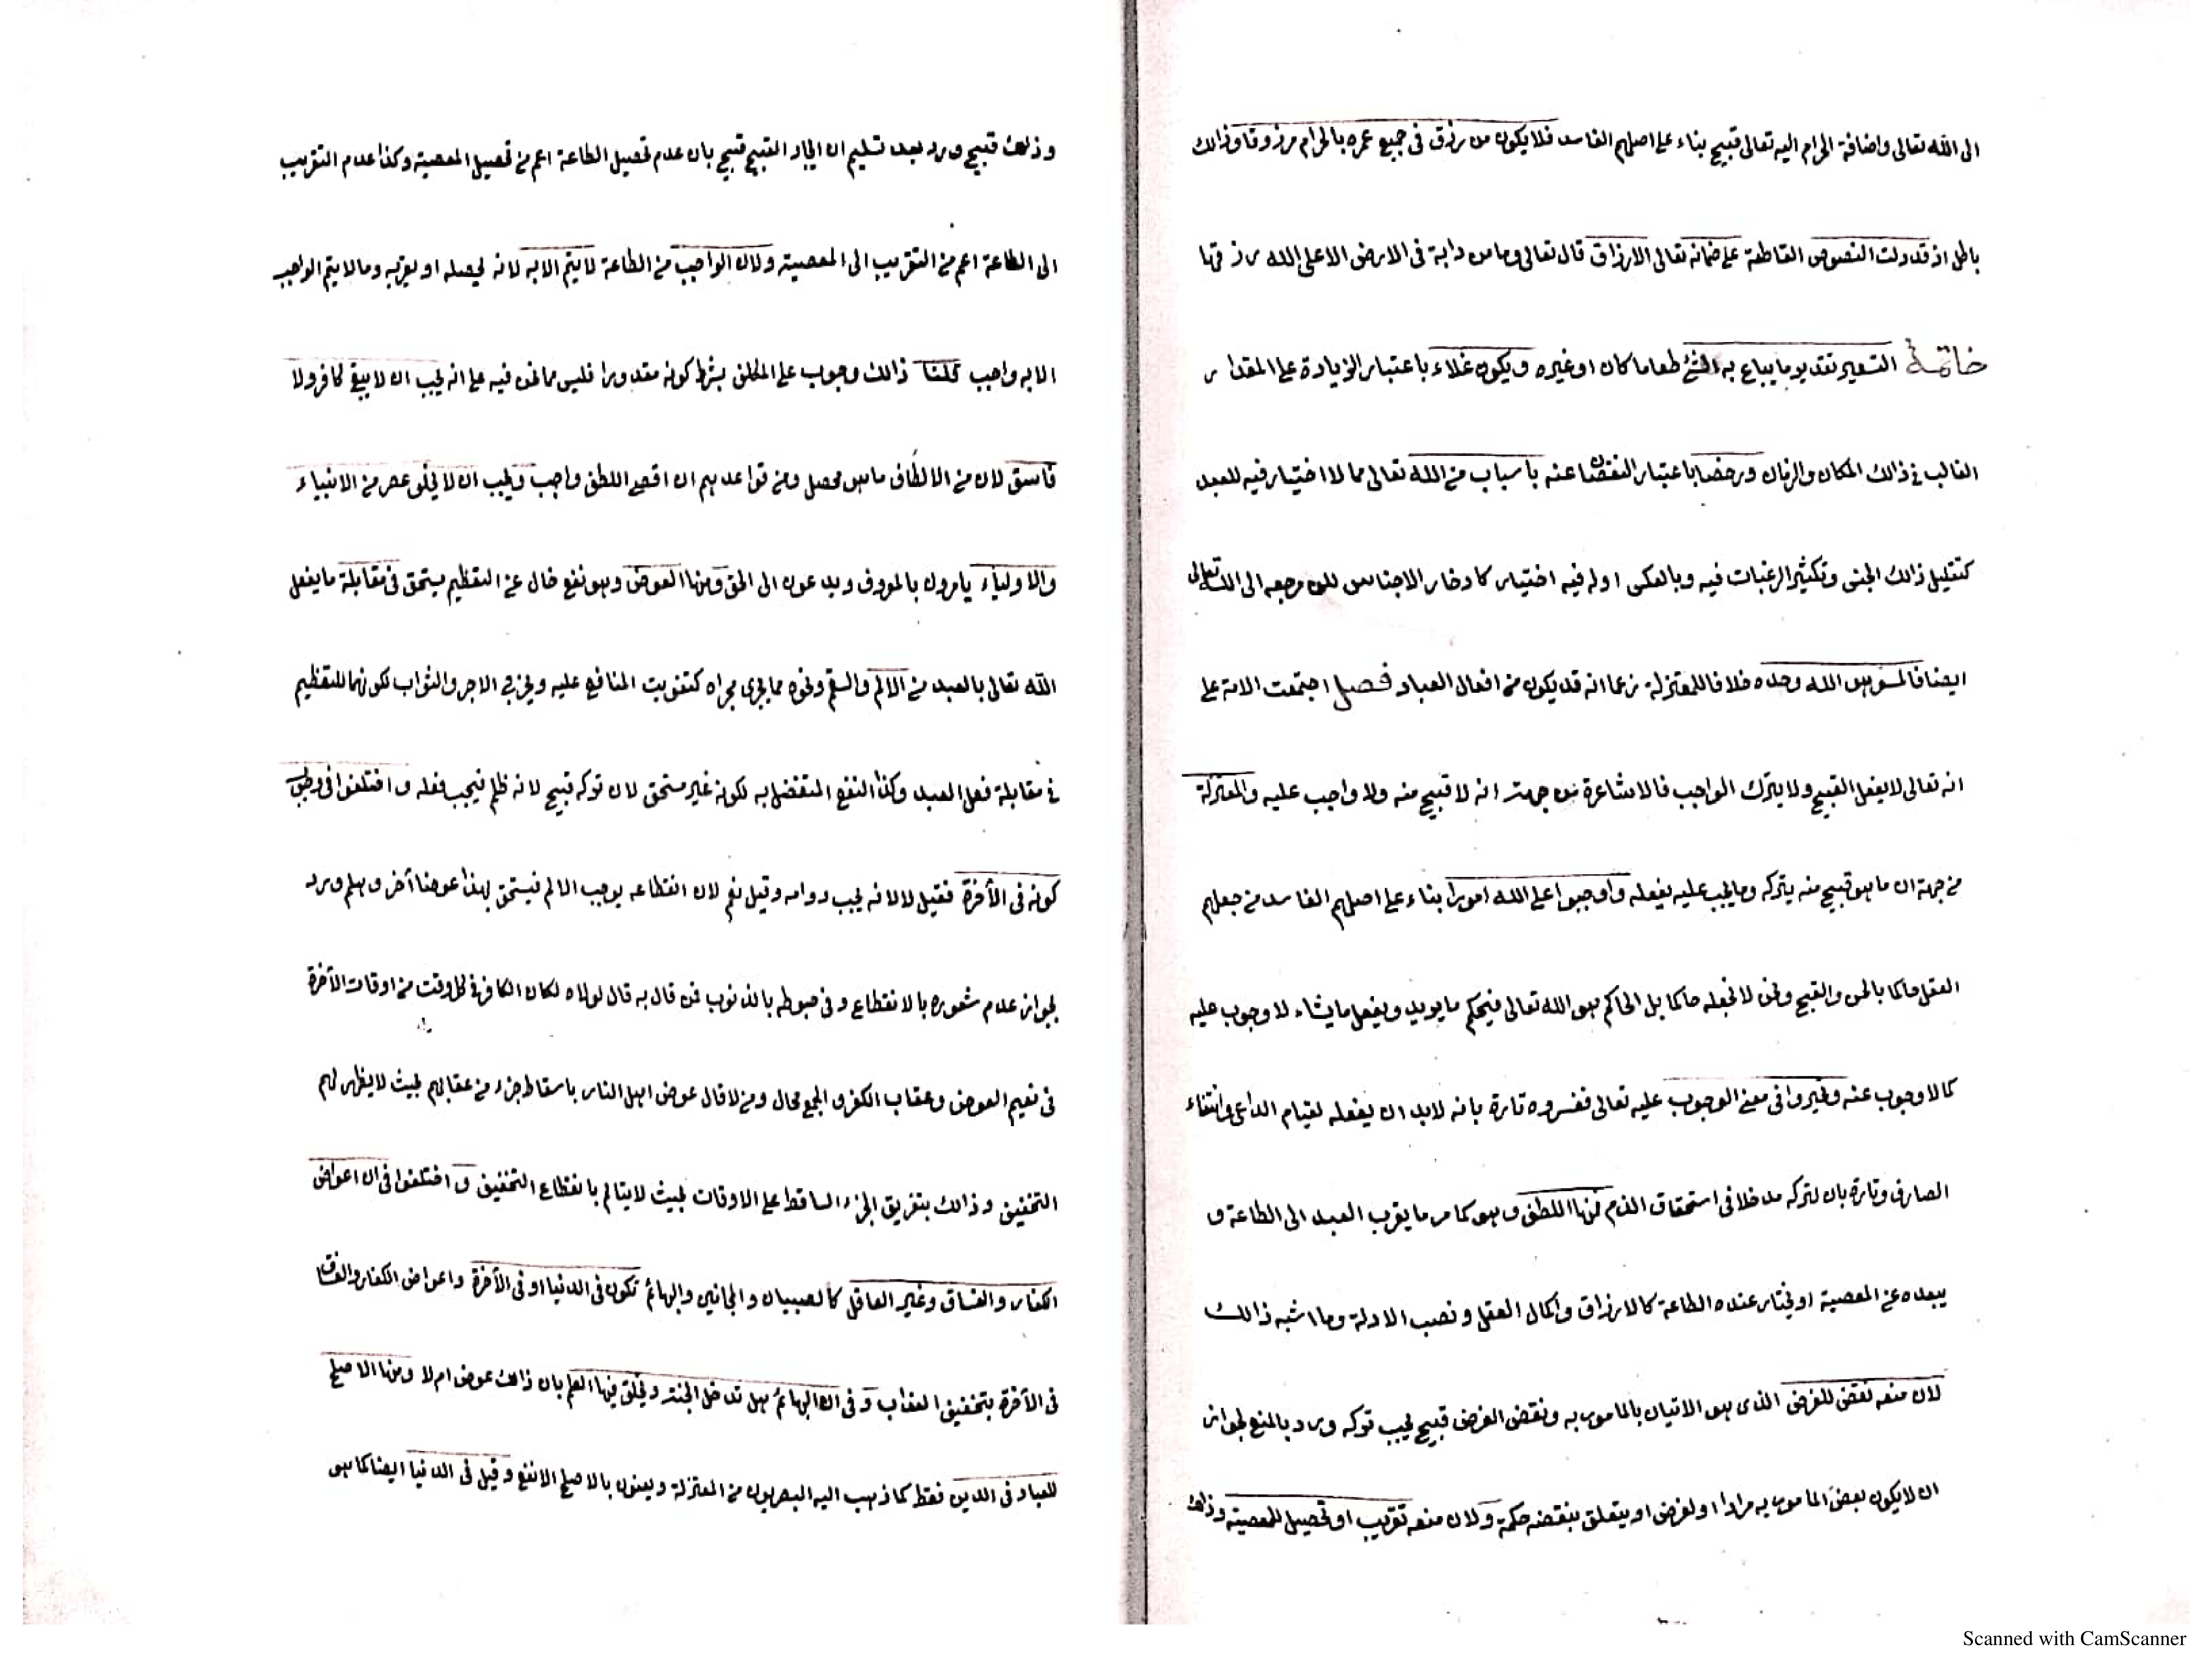 الى الله تعالى واضافة الحرام اليه تعالى قبيح بناء على اصلهم الفاسد فلا يكون من رزق فى جميع عمره بالحرام مرزوقا وذالك
باطل اذ قد دلت النصوص القاطعة على ضمانه تعالى الارزاق قال تعالى وما من دابة فى الارض الا على الله رزقها
خاتمة التسعير تقدير ما يباع به الشئ طعاما كان او غيره ويكون غلاء باعتبار الزيادة على المقدار
الغالب فى ذالك المكان والزمان ورخصا باعتبار النقصان عنه باسباب من الله تعالى مما لا اختيار فيه للعبد
كتقليل ذالك الجنس وتكثير الرغبات فيه وبالعكس او له فيه اختيار كادخار الاجناس لكن مرجعه الى الله تعالى
ايضا فالمسعر هو الله وحده خلافا للمعتزلة زعما انه قد يكون من افعال العباد فصل اجتمعت الامة على
انه تعالى لا يفعل القبيح ولا يترك الواجب فالاشاعرة من جهت انه لا قبيح منه ولا واجب عليه والمعتزلة
من جهة ان ما هو قبيح منه يتركه وما يجب عليه يفعله واوجبوا على الله امورا بناء على اصلهم الفاسد من جعلهم
العقل حاكما بالحسن والقبح ونحن لا نجعله حاكما بل الحاكم هو الله تعالى فيحكم ما يريد ويفعل ما يشاء لا وجوب عليه
كما لا وجوب عنه وتحيروا فى معنى الوجوب عليه تعالى ففسروه تارة بانه لا بد ان يفعله لقيام الداعى وانتفاء
الصارف وتارة بان لتركه مدخلا فى استحقاق الذم فمنها اللطف وهو كما مر ما يقرب العبد الى الطاعة و
يبعده عن المعصية او يختار عنده الطاعة كالارزاق واكمال العقل ونصب الادلة وما اشبه ذالك
لان منعه نقض للغرض الذى هو الاتيان بالمامور به ونقض الغرض قبيح يجب تركه ورد بالمنع لجواز
ان لا يكون بعض المامور به مرادا او لغرض او يتعلق بنقضه حكمة ولان منعه تقريب او تحصيل للمعصية وذلك
وذلك قبيح ورد بعد تسليم ان ايجاد القبيح قبيح بان عدم تحصيل الطاعة اعم من تحصيل المعصية وكذا عدم التقريب
الى الطاعة اعم من التقريب الى المعصية ولان الواجب من الطاعة لا يتم الا به لانه يحصله او يقربه وما لا يتم الواجب
الا به واجب قلنا ذالك وجوب على المكلف بشرط كونه مقدورا فليس مما نحن فيه على انه يجب ان لا يبقى كافر ولا
فاسق لان من الالطاف ما هو محصل ومن قواعدهم ان اقصى اللطف واجب ويجب ان لا يخلى عصر من الانبياء
والاولياء يامرون بالمعروف ويدعون الى الحق ومنها العوض وهو نفع خال عن التعظيم يستحق فى مقابلة ما يفعل
الله تعالى بالعبد من الالم والسقم ونحوه مما يجرى مجراه كتفويت المنافع عليه ويخرج الاجر والثواب لكونهما للتعظيم
فى مقابلة فعل العبد وكذا النفع المتفضل به لكونه غير مستحق لان تركه قبيح لانه ظلم فيجب فعله واختلفوا فى وجوب
كونه فى الآخرة فقيل لا لانه يجب دوامه وقيل نعم لان انقطاعه يوجب الالم فيستحق بهذا عوضا آخر وهلم ورد
بجواز عدم شعوره بالانقطاع وفى حبوطه بالذنوب فمن قال به قال لولاه لكان الكافر فى كل وقت من اوقات الآخرة
فى نعيم العوض وعقاب الكفر والجمع محال ومن لا قال عوض اهل النار باسقاط جزء من عقابهم بحيث لا يظهر لهم
التخفيف وذالك بتفريق الجزء الساقط على الاوقات بحيث لا يتالم بانقطاع التخفيف واختلفوا فى ان اعواض
الكفار والفساق وغير العاقل كالصبيان والمجانين والبهائم تكون فى الدنيا او فى الآخرة واعواض الكفار والفساق
فى الآخرة بتخفيف العذاب وفى ان البهائم هل تدخل الجنة ويخلق فيها العلم بان ذالك عوض ام لا ومنها الاصلح
للعباد فى الدين فقط كما ذهب اليه البصريون من المعتزلة ويعنون بالاصلح الانفع وقيل فى الدنيا ايضا كما هو
Scanned with CamScanner